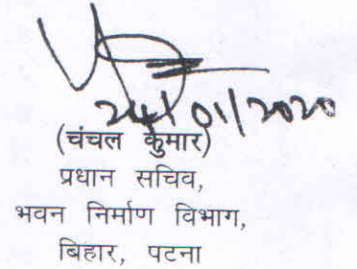 24/01/2020
(चंचल कुमार)
प्रधान सचिव,
भवन निर्माण विभाग,
बिहार, पटना